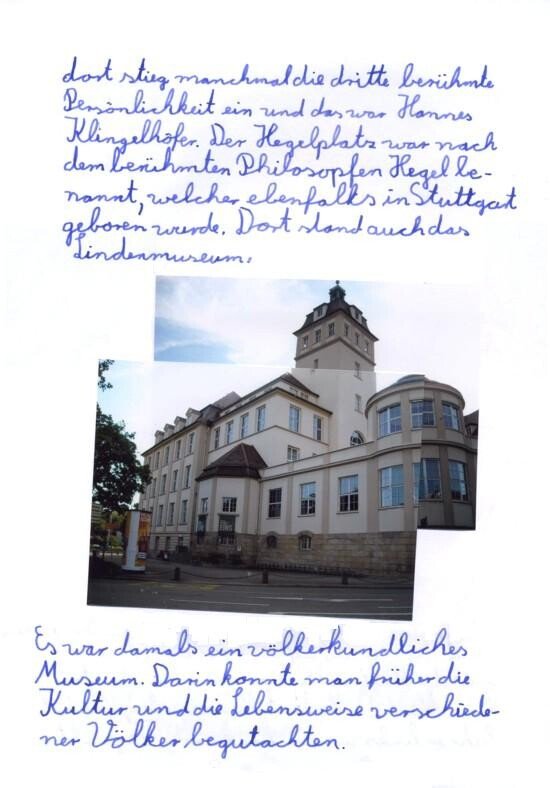 dort stieg manchmal die dritte berühmte
Persönlichkeit ein und das war Hannes
Klingelhöfer. Der Hegelplatz war nach
dem berühmten Philosopfen Hegel be-
nannt, welcher ebenfalls in Stuttgart
geboren wurde. Dort stand auch das
Lindenmuseum.
Es war damals ein völkerkundliches
Museum. Darin konnte man früher die
Kultur und die Lebensweise verschiede-
ner Völker begutachten.